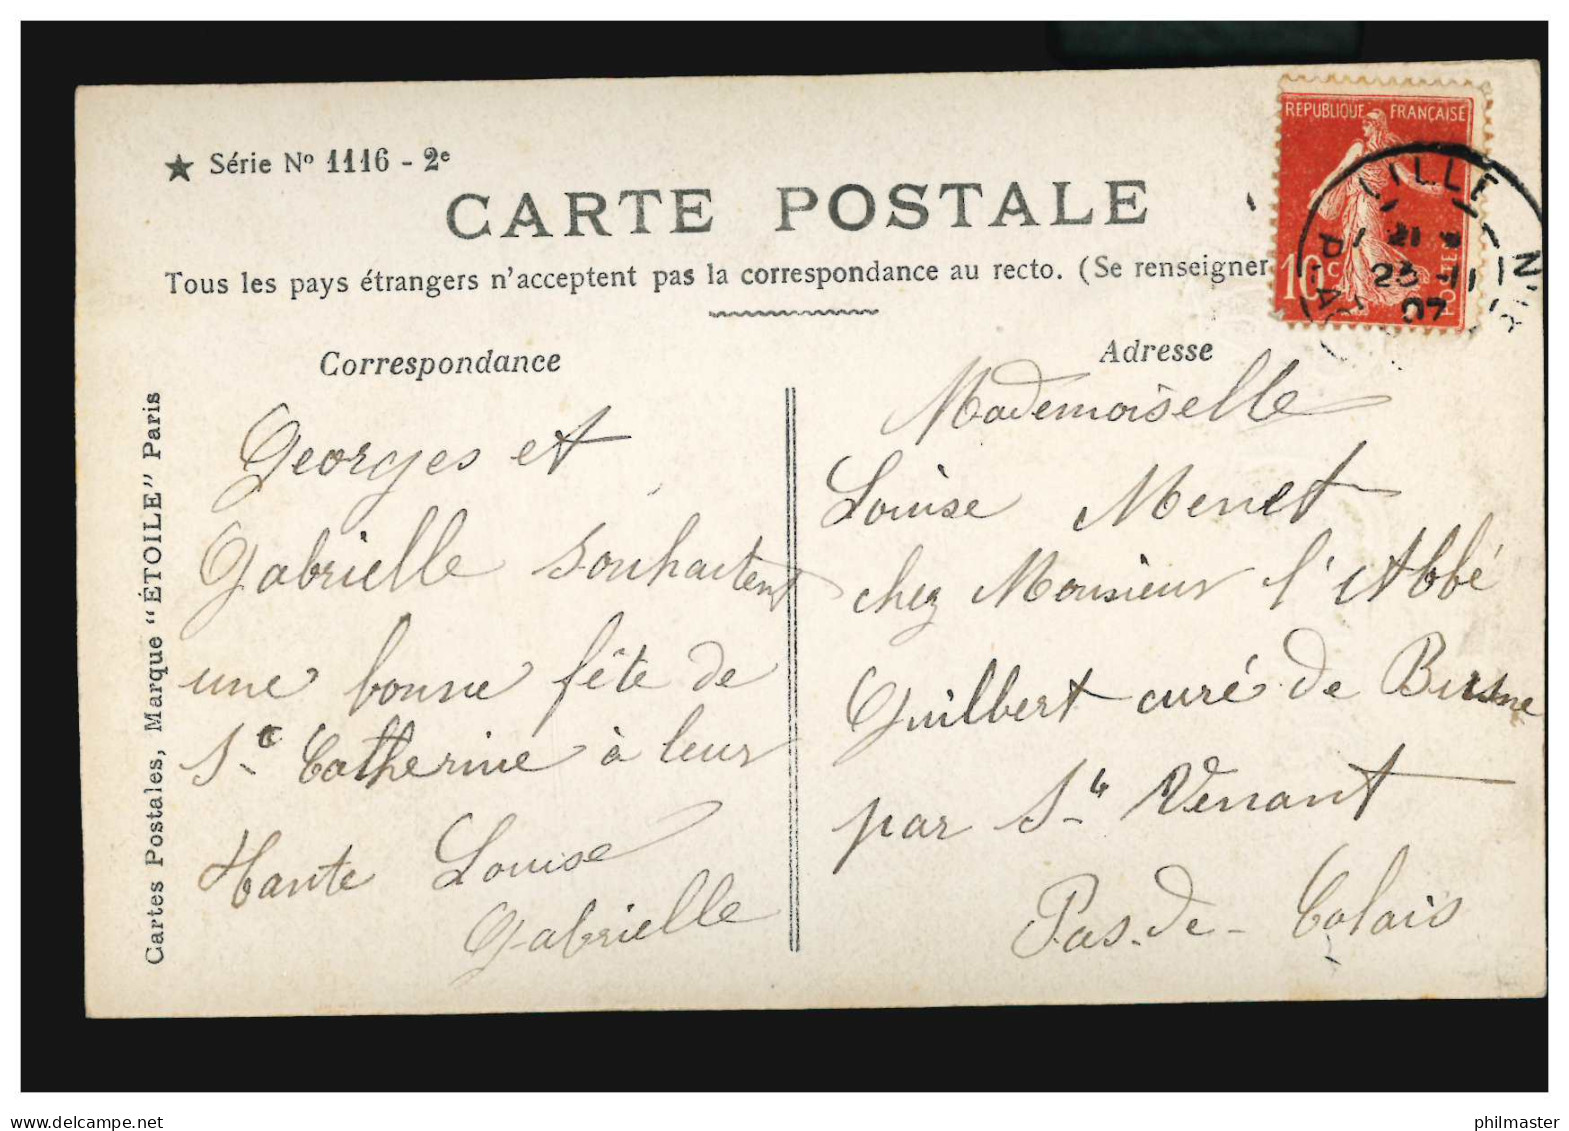 ★ Série Nº 1116 - 2e
CARTE POSTALE
Tous les pays étrangers n'acceptent pas la correspondance au recto. (Se renseigner
REPUBLIQUE FRANÇAISE
10c
POSTES
LILLE
23 - 11
07
Correspondance
Georges et
Gabrielle souhaitent
une bonne fête de
Ste Catherine à leur
Hante Louise
Gabrielle
Adresse
Mademoiselle
Louise Menet
chez Monsieur l'Abbé
Guilbert curé de Busne
par St Venant
Pas-de-Calais
Cartes Postales, Marque "ÉTOILE" Paris
www.delcampe.net
philmaster